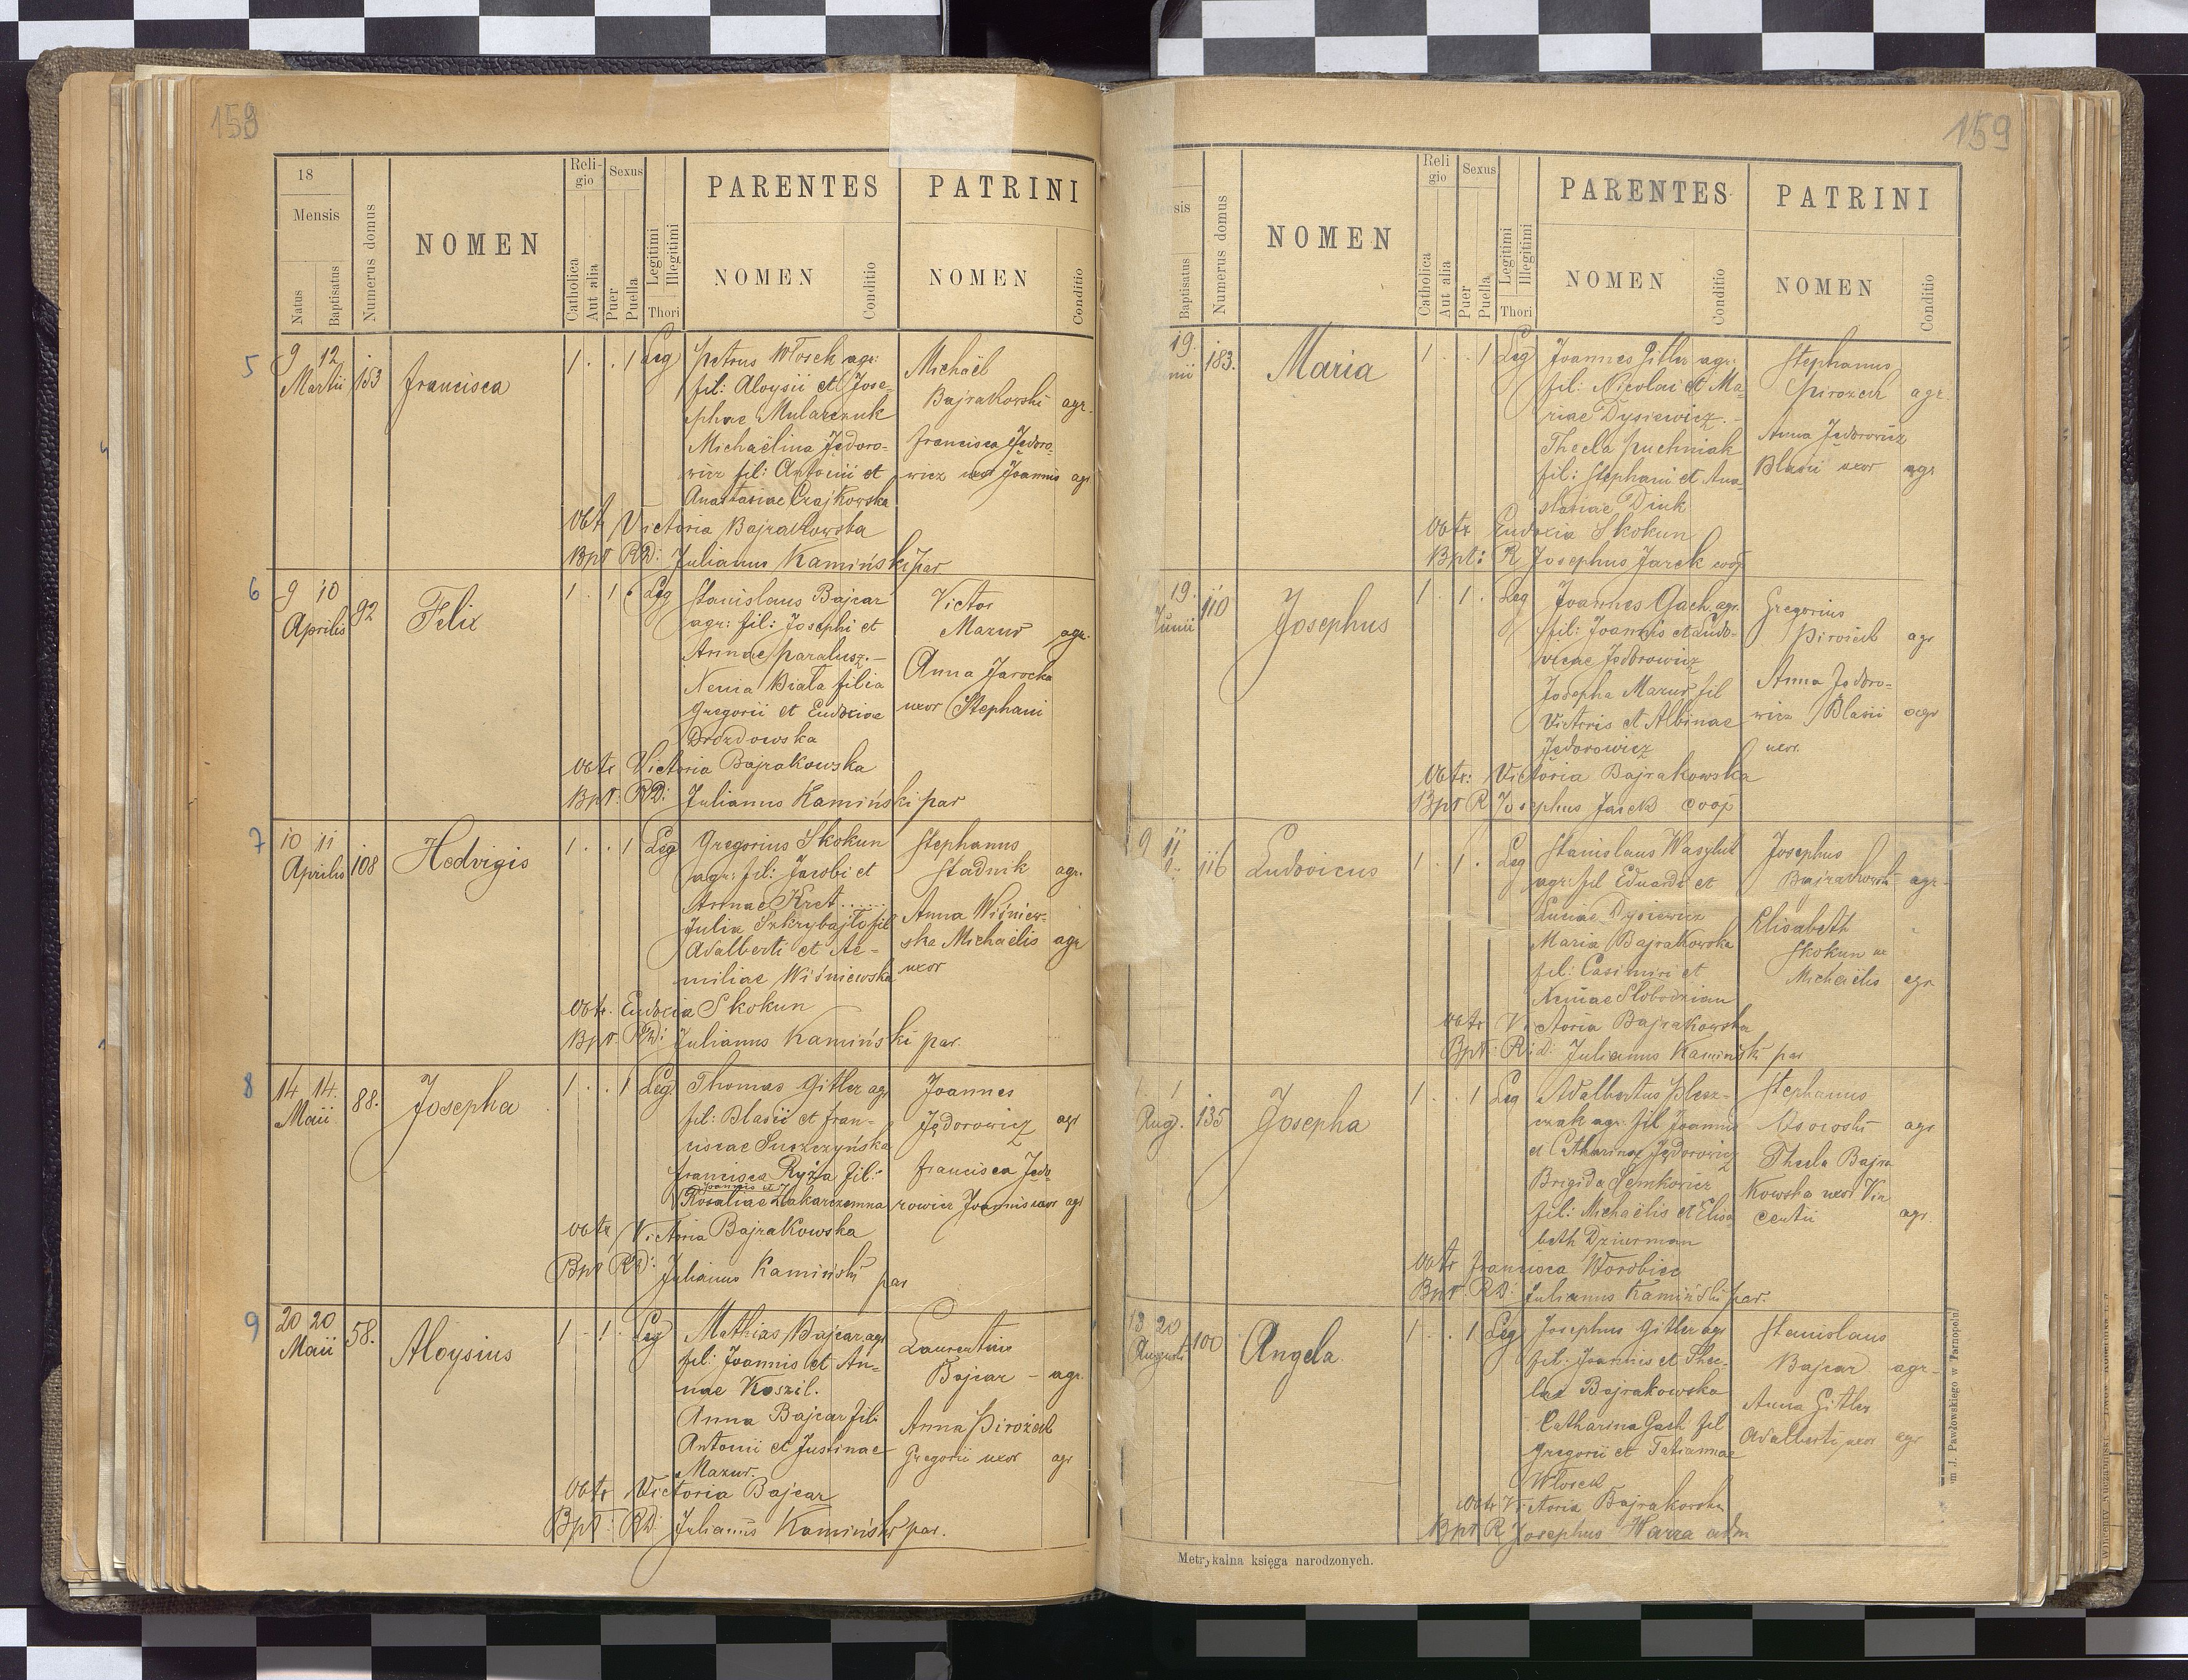 158
18
Mensis
Natus
Baptisatus
Numerus domus
NOMEN
Reli-
gio
Catholica
Aut alia
Sexus
Puer
Puella
Legitimi
Illegitimi
Thori
PARENTES
NOMEN
Conditio
PATRINI
NOMEN
Conditio
5
9 12
Martii
153
Francisca
1 . . 1 Leg
Petrus Włosek agr:
fil: Aloysii et Jose-
phae Mularczuk
Michaëlina Jędoro-
wicz fil: Antonii et
Anastasiae Czajkowska
Michaël
Bajrakowski agr.
Francisca Jędoro-
wicz uxor Joannis agr
Obtr Victoria Bajrakowska
Bpt RD: Julianus Kamiński par
6
9 10
Aprilis
92
Felix
1 . 1 . Leg
Stanislaus Bajcar
agr: fil: Josephi et
Annae Paralusz.—
Xenia Biała filia
Gregorii et Eudoxiae
Drozdowska
Victor
Mazur agr.
Anna Jarocka
uxor Stephani
Obtr Victoria Bajrakowska
Bpt: RD: Julianus Kamiński par
7
10 11
Aprilis
108
Hedvigis
1 . . 1 Leg
Gregorius Skokun
agr: fil: Jacobi et
Annae Kret......
Julia Szkrybajło fil
Adalberti et Ae-
miliae Wiśniewska
Stephanus
Stadnik agr.
Anna Wiśniew-
ska Michaëlis agr
uxor
Obtr. Eudoxia Skokun
Bpt. RD: Julianus Kamiński par.
8
14 14.
Maii
88.
Josepha
1 . . 1 Leg.
Thomas Gitler agr
fil: Blasii et Fran-
ciscae Suszczyńska
Francisca Ryża fil:
Joannis et
Rosaliae Zakarczemna
Joannes
Jędorowicz agr
Francisca Jędo-
rowicz Joannis uxor agr
Obtr Victoria Bajrakowska
Bpt RD: Julianus Kamiński par
9
20 20
Maii
58.
Aloysius
1 - 1. Leg
Mathias Bajcar agr
fil: Joannis et An-
nae Koszil.
Anna Bajcar fil:
Antonii et Justinae
Mazur.
Laurentius
Bajcar - agr.
Anna Pirożek
Gregorii uxor agr
Obtr Victoria Bajcar
Bpt: RD: Julianus Kamiński par.
159
Baptisatus
Numerus domus
NOMEN
Reli
gio
Catholica
Aut alia
Sexus
Puer
Puella
Legitimi
Illegitimi
Thori
PARENTES
NOMEN
Conditio
PATRINI
NOMEN
Conditio
19.
183.
Maria
1 . . 1 Leg
Joannes Gitler agr:
fil: Nicolai et Ma-
riae Dysiewicz.-
Thecla Puchniak
fil: Stephani et Ana-
stasiae Diuk
Stephanus
Pirożek agr.
Anna Jędorowicz
Blasii uxor agr
Obtr Eudoxia Skokun
Bpt: R Josephus Jarek coop
19.
Junii
110
Josephus
1 . 1 . Leg
Joannes Gach agr.
fil: Joannis et Ludo-
vicae Jędorowicz
Josepha Mazur fil
Victoris et Albinae
Jędorowicz
Gregorius
Pirożek agr
Anna Jędoro-
wicz Blasii agr
uxor.
Obtr: Victoria Bajrakowska
Bpt R Josephus Jarek coop
9 11
116
Ludovicus
1 . 1 . Leg
Stanislaus Wasylut
agr: fil Eduardi et
Luciae Dysiewicz
Maria Bajrakowska
fil: Casimiri et
Xeniae Słobodzian
Josephus
Bajrakowski agr-
Elisabeth
Skokun ux
Michaëlis agr
Obtr Victoria Bajrakowska
Bpt: R: D: Julianus Kamiński par
1. 1
Aug.
135
Josepha
1 . . 1 Leg
Adalbertus Plesz-
czak agr: fil Joannis
et Catharinae Jędorowicz
Brigida Semkowicz
fil: Michaëlis et Elisa
beth Dziurman
Stephanus
Osowski agr
Thecla Bajra
kowska uxor Vin
centii agr.
Obtr Francisca Worobiec
Bpt RD: Julianus Kamiński par.
18 20
Augusti
100
Angela.
1 . . 1 Leg
Josephus Gitler agr
fil: Joannis et Thec-
lae Bajrakowska
Catharina Gach fil
Gregorii et Tatiannae
Włosek
Stanislaus
Bajcar agr-
Anna Gitler
Adalberti uxor agr
Obtr Victoria Bajrakowska
Bpt R Josephus Warza adm
Metrykalna księga narodzonych.
m J. Pawłowskiego w Tarnopolu